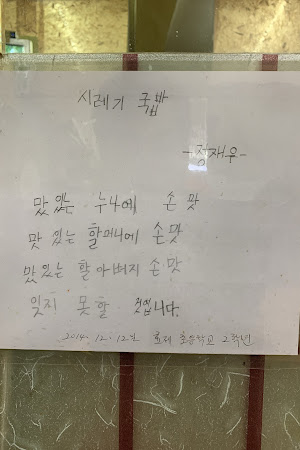 시레기 국밥
-정재우-
맜있는 누나에 손 맛
맛 있는 할머니에 손 맛
맜있는 할아버지 손 맛
잊지 못할 것입니다.
2014. 12. 12. 효제 초등학교 2학년